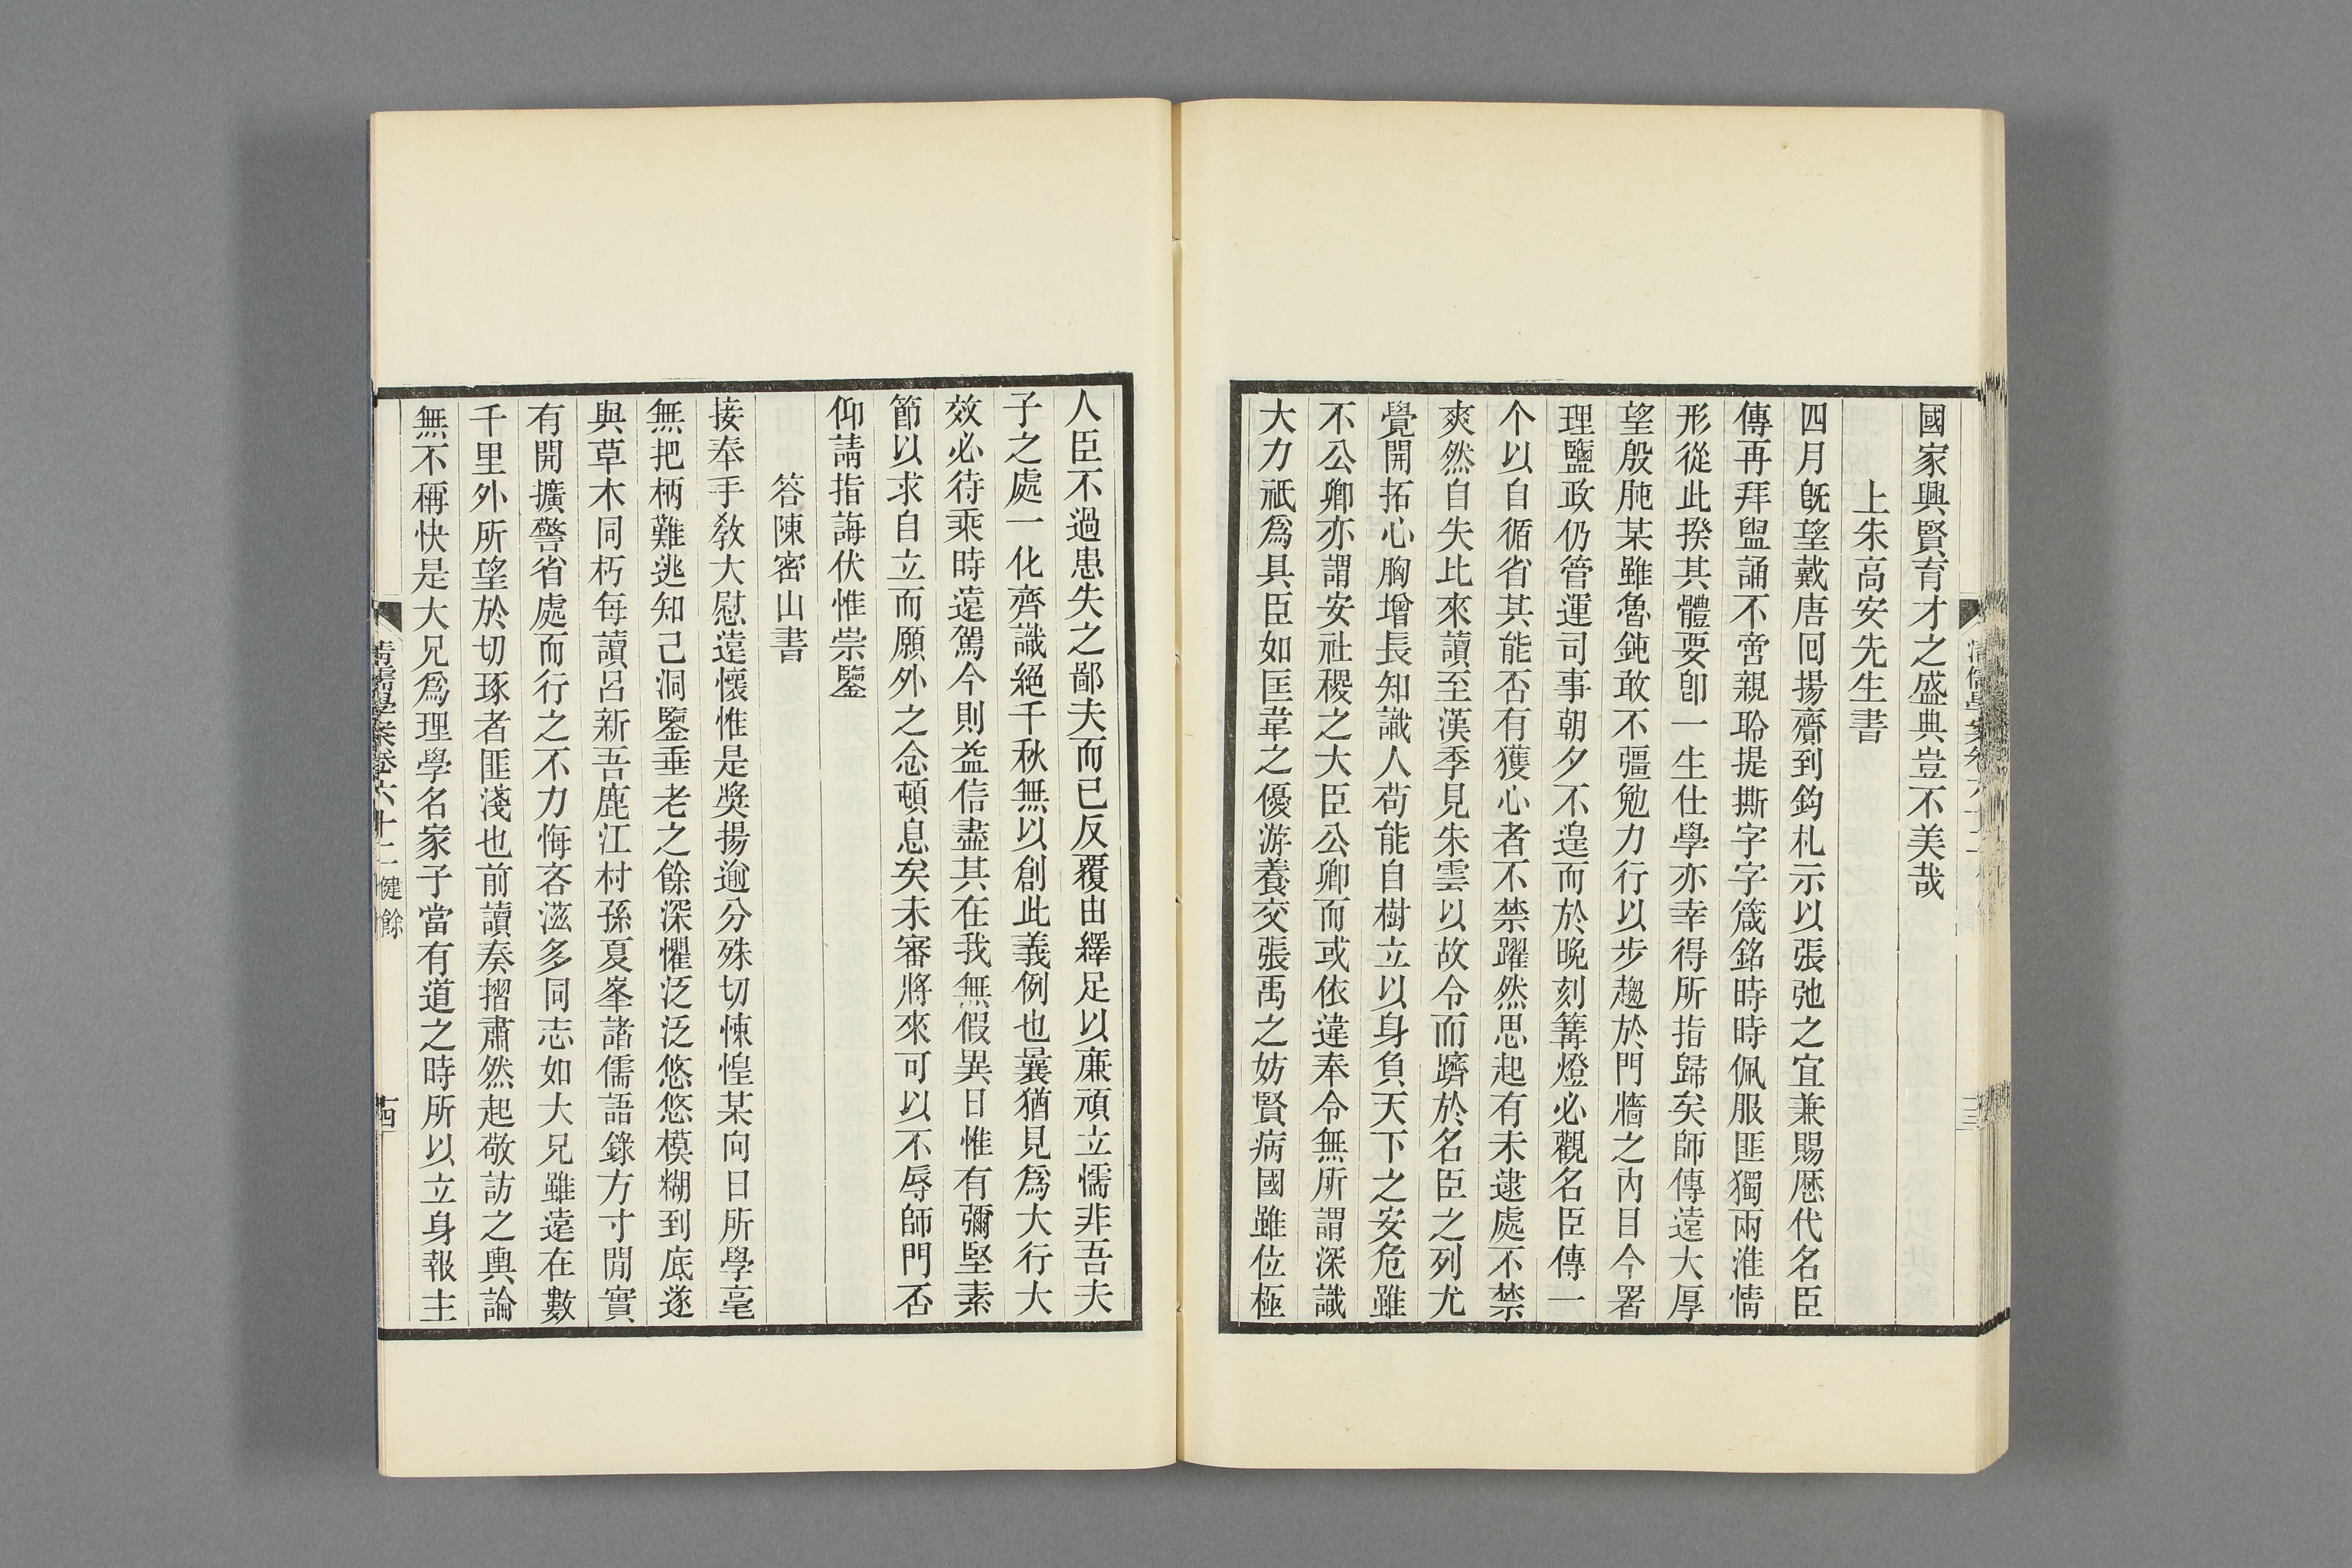 國家興賢育才之盛典豈不美哉
上朱高安先生書
四月旣望戴唐回揚齎到鈞札示以張弛之宜兼賜歷代名臣
傳再拜盥誦不啻親聆提撕字字箴銘時時佩服匪獨兩淮情
形從此揆其體要卽一生仕學亦幸得所指歸矣師傳遠大厚
望殷肫某雖魯鈍敢不彊勉力行以步趨於門牆之內目今署
理鹽政仍管運司事朝夕不遑而於晚刻篝燈必觀名臣傳一
个以自循省其能否有獲心者不禁躍然思起有未逮處不禁
爽然自失比來讀至漢季見朱雲以故令而躋於名臣之列尤
覺開拓心胸增長知識人苟能自樹立以身負天下之安危雖
不公卿亦謂安社稷之大臣公卿而或依違奉令無所謂深識
大力祇爲具臣如匡韋之優游養交張禹之妨賢病國雖位極
人臣不過患失之鄙夫而已反覆由繹足以廉頑立懦非吾夫
子之處一化齊識絕千秋無以創此義例也曩猶見爲大行大
效必待乘時遠駕今則益信盡其在我無假異日惟有彌堅素
節以求自立而願外之念頓息矣未審將來可以不辱師門否
仰請指誨伏惟崇鑒
答陳密山書
接奉手敎大慰遠懷惟是獎揚逾分殊切悚惶某向日所學毫
無把柄難逃知己洞鑒垂老之餘深懼泛泛悠悠模糊到底遂
與草木同朽每讀呂新吾鹿江村孫夏峯諸儒語錄方寸閒實
有開擴警省處而行之不力悔吝滋多同志如大兄雖遠在數
千里外所望於切琢者匪淺也前讀奏摺肅然起敬訪之輿論
無不稱快是大兄爲理學名家子當有道之時所以立身報主
清儒學案卷六十二 健餘
十四